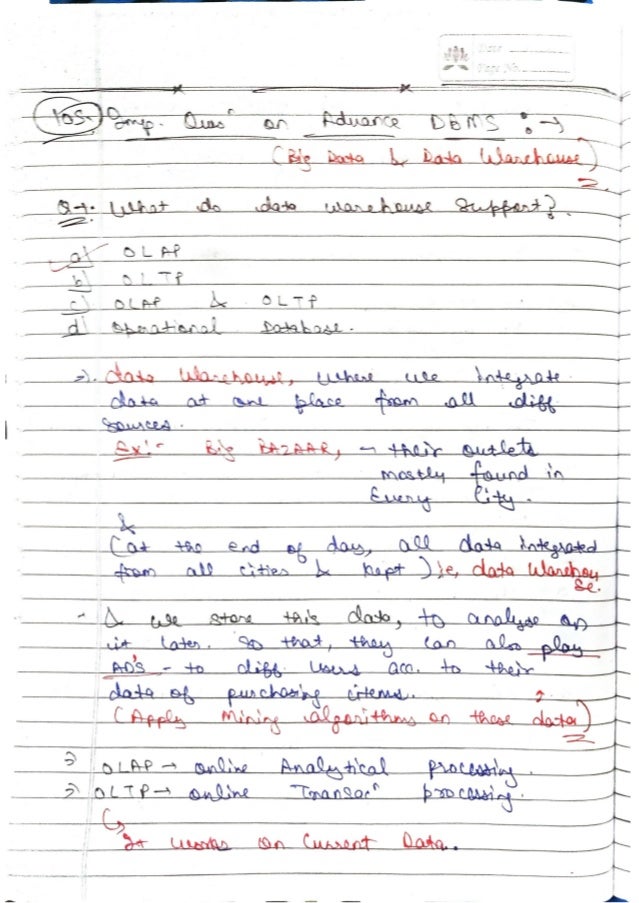 Date
Page No.
105. Imp. Quesⁿ on Advance DBMS :→
(Big Data & Data Warehouse)
Q→. What do data warehouse support?.
a) OLAP
b) OLTP
c) OLAP & OLTP
d) Operational Database.
⇒. data Warehouse, where we integrate
data at one place from all diff
sources.
Ex:- Big BAZAAR, → their outlets
mostly found in
Every City.
&
(at the end of day, all data integrated
from all cities & kept) ie, data Warehou
se.
- & we store this data, to analyse on
it later. So that, they can also play
AD's - to diff. users acc. to their
data of purchasing items.
(Apply Mining algorithms on these data)
⇒ OLAP → online Analytical processing.
⇒ OLTP → online Transacⁿ processing.
↳ It works on Current Data.